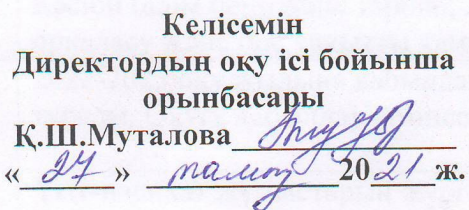 Келісемін
Директордың оқу ісі бойынша
орынбасары
Қ.Ш.Муталова
«27» тамыз 2021 ж.